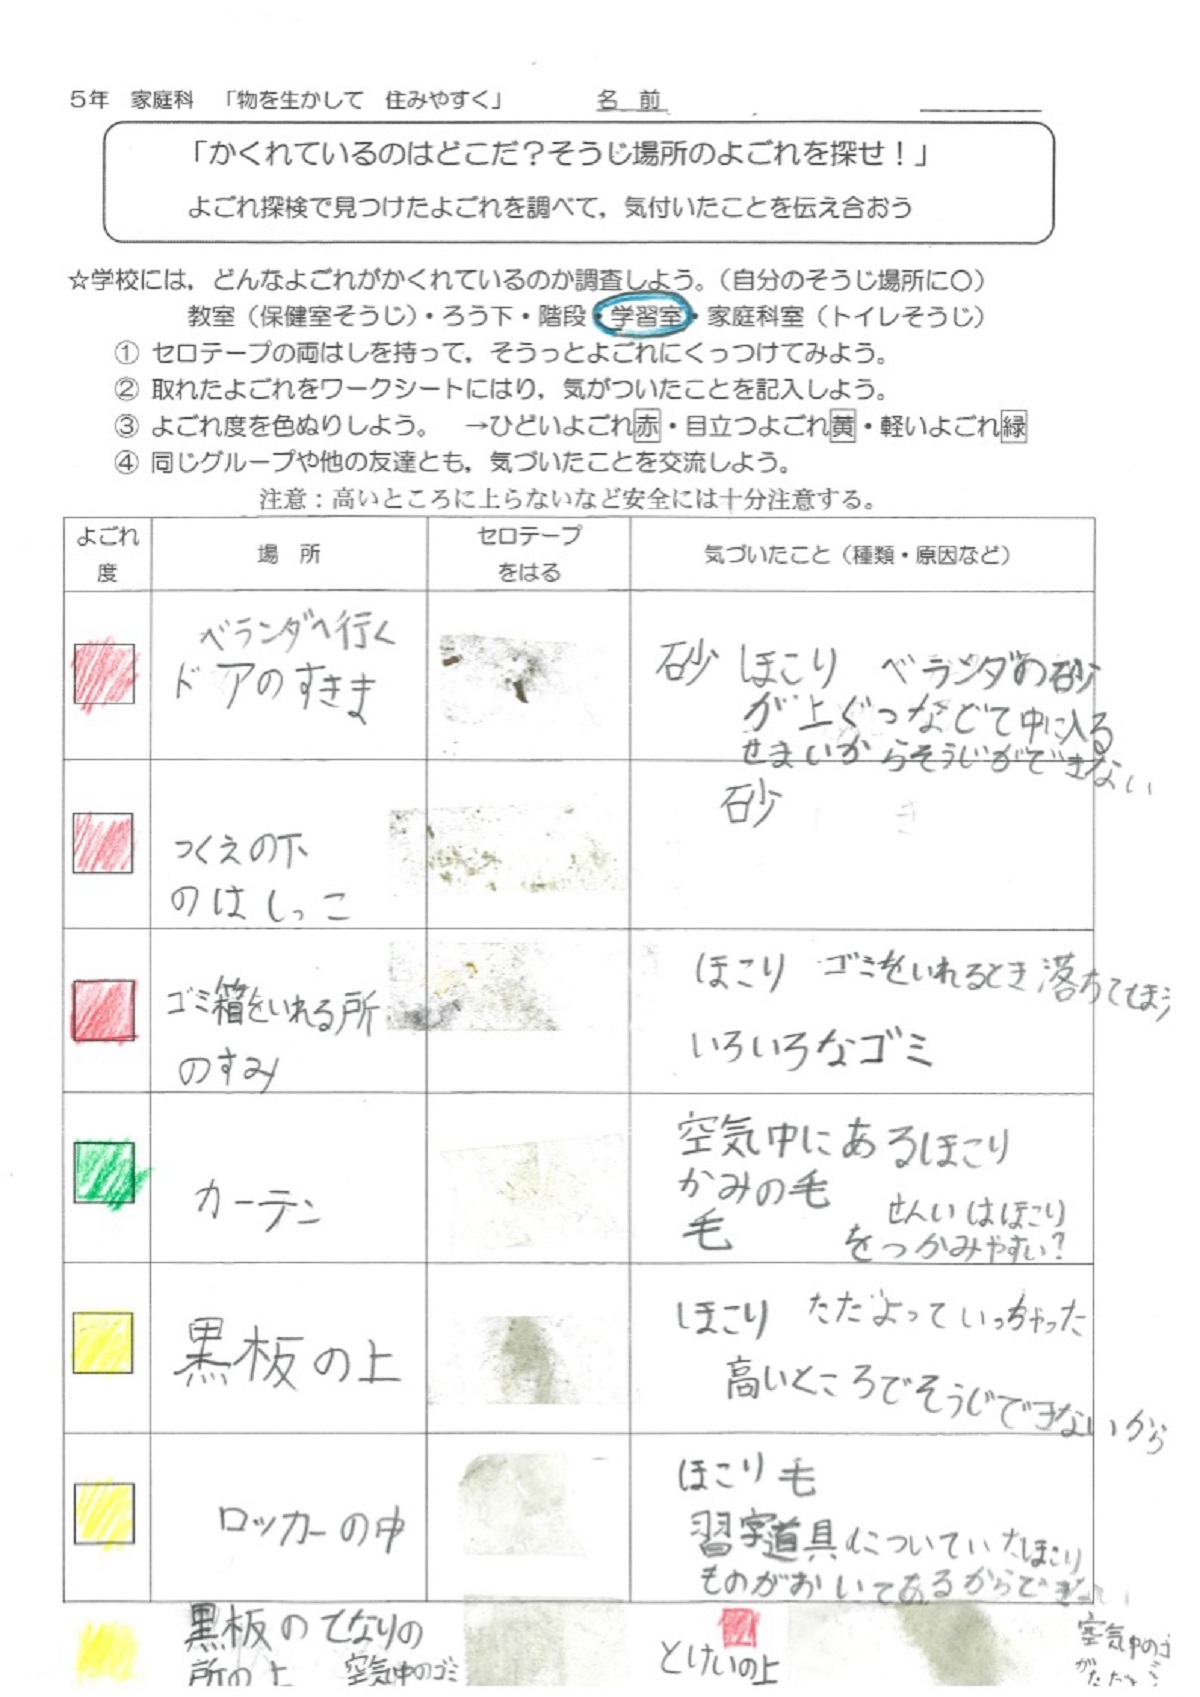 5年 家庭科 「物を生かして 住みやすく」 名 前
「かくれているのはどこだ?そうじ場所のよごれを探せ!」
よごれ探検で見つけたよごれを調べて，気付いたことを伝え合おう
☆学校には，どんなよごれがかくれているのか調査しよう。（自分のそうじ場所に〇）
教室（保健室そうじ）・ろう下・階段・学習室・家庭科室（トイレそうじ）
① セロテープの両はしを持って，そうっとよごれにくっつけてみよう。
② 取れたよごれをワークシートにはり，気がついたことを記入しよう。
③ よごれ度を色ぬりしよう。 →ひどいよごれ赤・目立つよごれ黄・軽いよごれ緑
④ 同じグループや他の友達とも，気づいたことを交流しよう。
注意：高いところに上らないなど安全には十分注意する。
よごれ
度
場 所
セロテープ
をはる
気づいたこと（種類・原因など）
ベランダへ行く
ドアのすきま
砂 ほこり ベランダの砂
が上ぐつなどで中に入る
せまいからそうじができない
つくえの下
のはしっこ
砂
ゴミ箱をいれる所
のすみ
ほこり ゴミをいれるとき落ちてしまう
いろいろなゴミ
カーテン
空気中にあるほこり
かみの毛
毛
せんいはほこり
をつかみやすい?
黒板の上
ほこり ただよっていっちゃった
高いところでそうじできないから
ロッカーの中
ほこり 毛
習字道具についていたほこり
ものがおいてあるからでき
黒板のとなりの
所の上 空気中のゴミ
とけいの上
空気中のゴミ